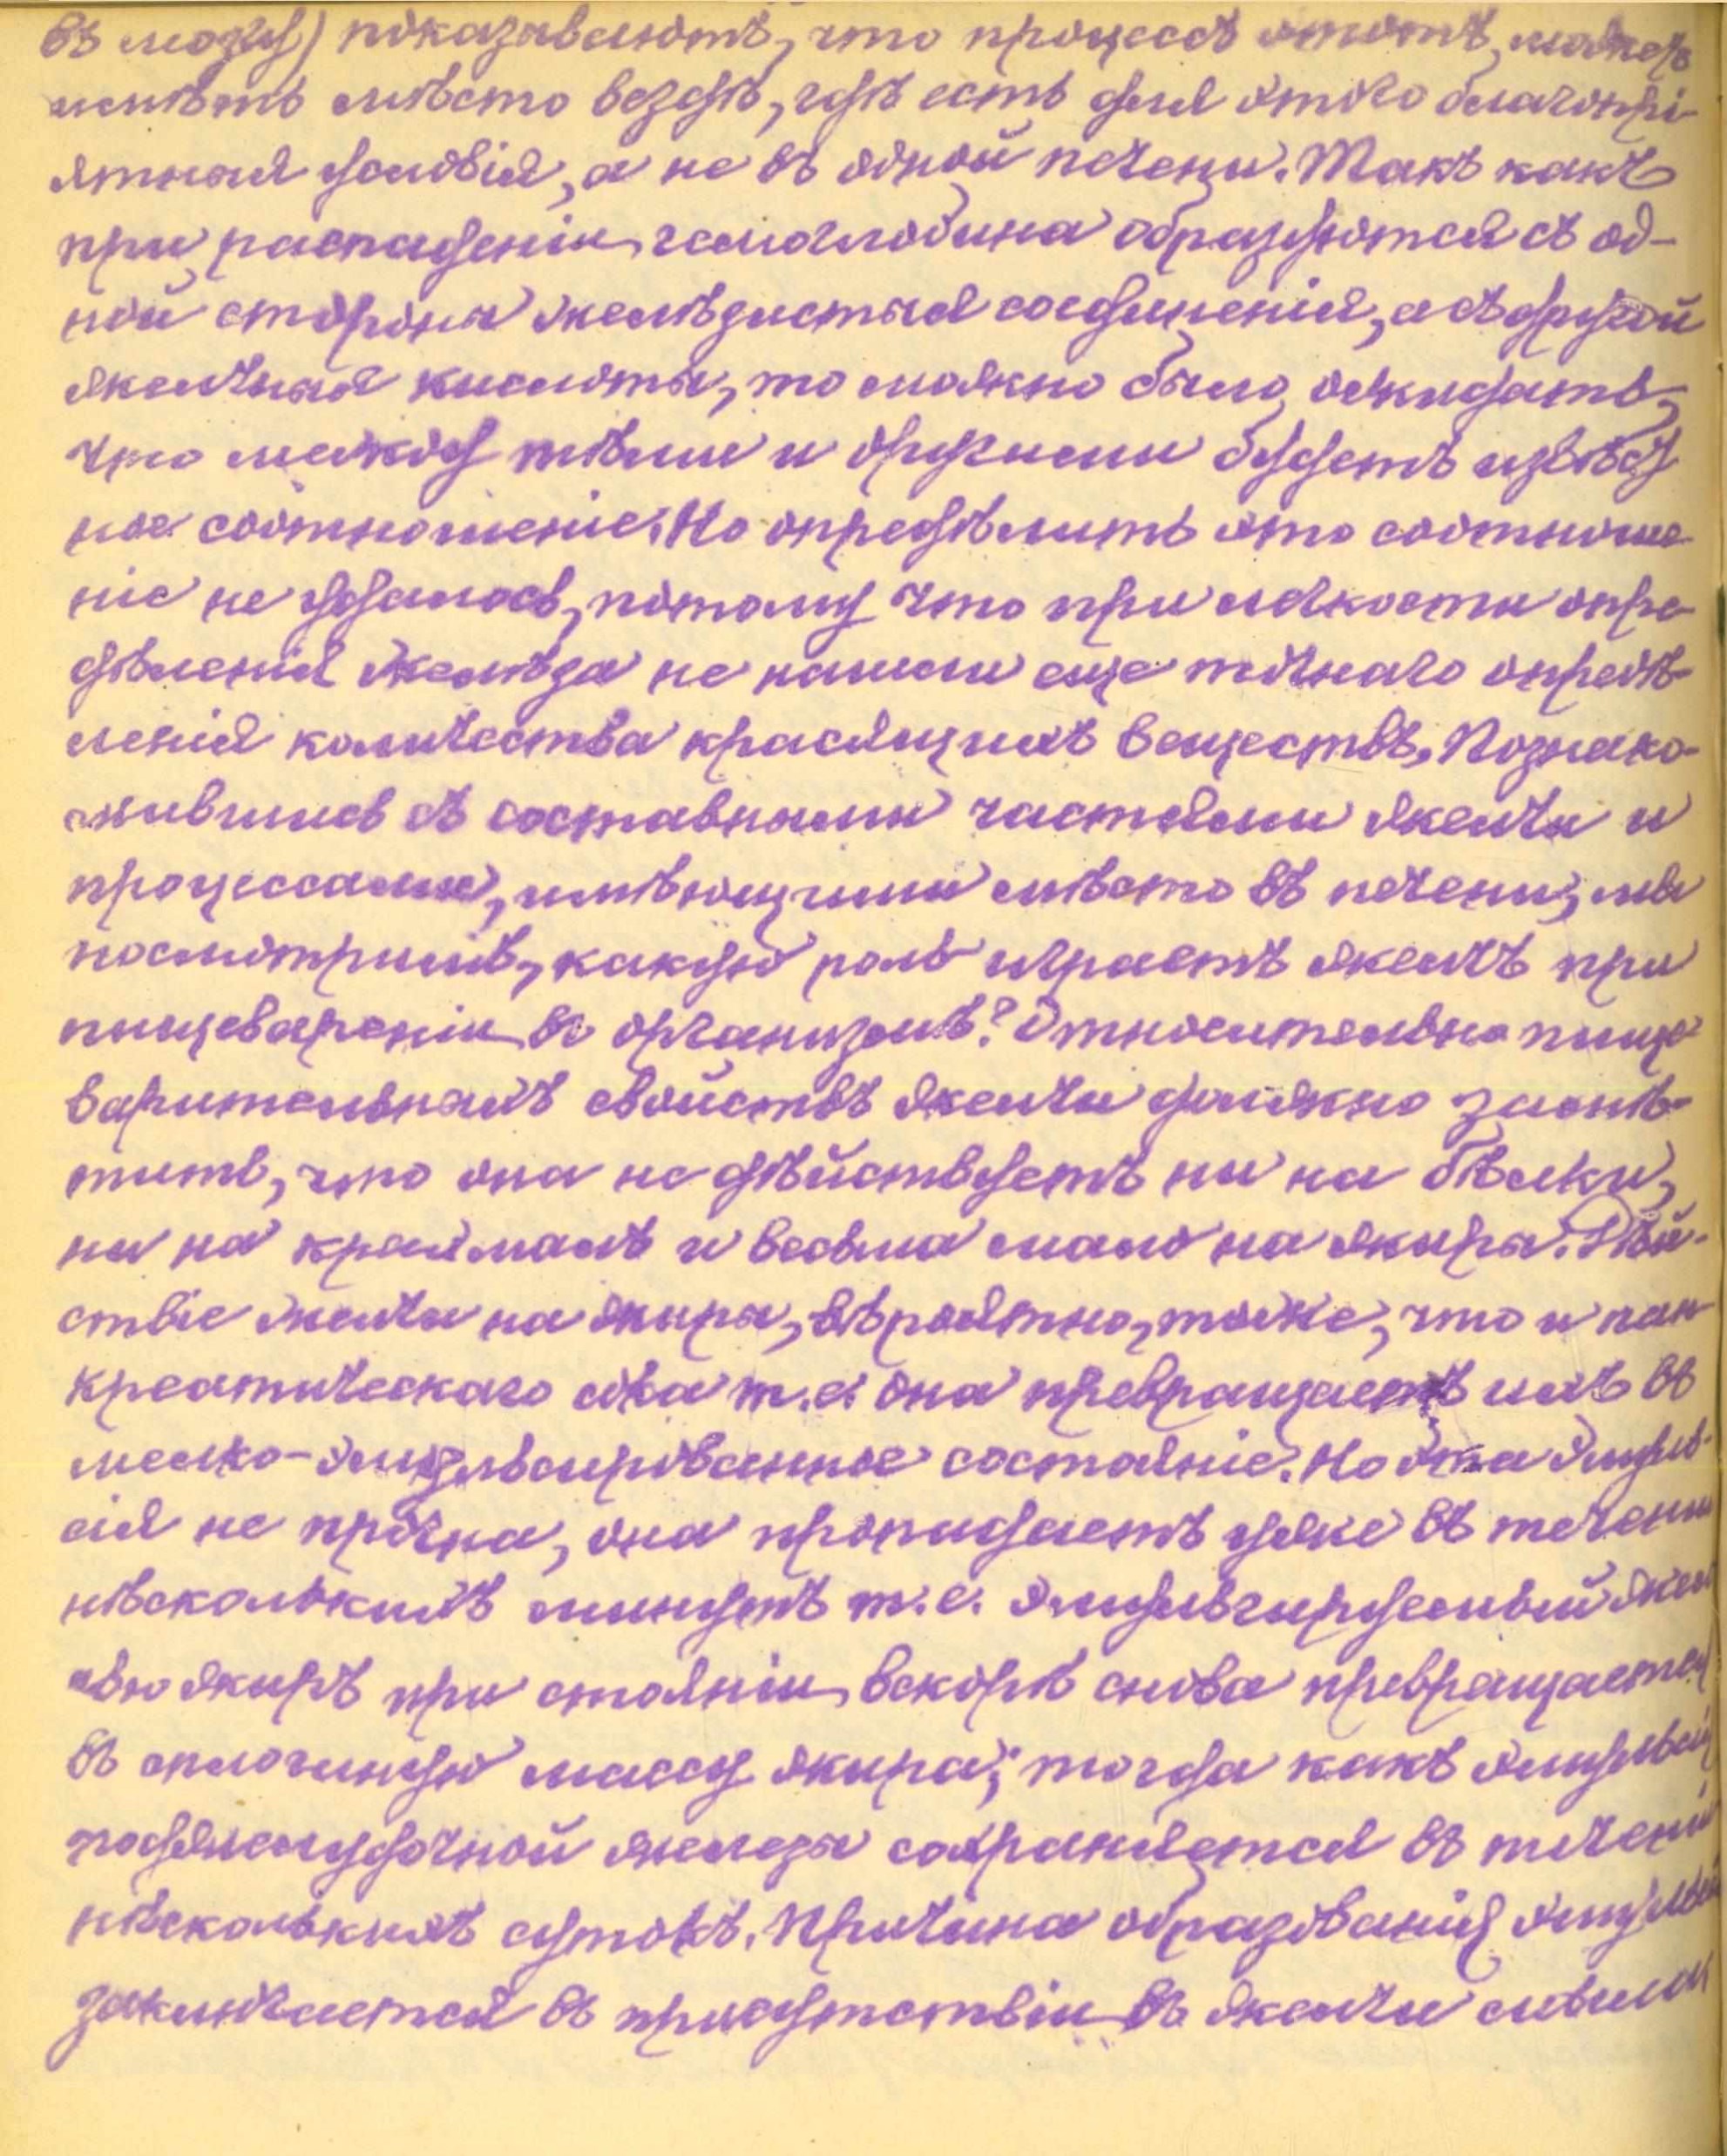 въ мозгу) показываютъ, что процессъ этотъ, можетъ
имѣть мѣсто вездѣ, гдѣ есть для этого благопрі-
ятныя условія, а не въ одной печени. Такъ какъ
при распаденіи гемоглобина образуются съ од-
ной стороны желѣзистыя соединенія, а съ другой
желчныя кислоты, то можно было ожидать,
что между тѣми и другими будетъ извѣст
ное соотношеніе. Но опредѣлить это соотноше
ніе не удалось, потому что при легкости опре-
дѣленія желѣза не нашли еще точнаго опредѣ-
ленія количества красящихъ веществъ. Познако-
мившись съ составными частями желчи и
процессами, имѣющими мѣсто въ печени, мы
посмотримъ, какую роль играетъ желчь при
пищевареніи въ организмѣ? Относительно пище-
варительныхъ свойствъ желчи должно замѣ-
тить, что она не дѣйствуетъ ни на бѣлки,
ни на крахмалъ и весьма мало на жиры. Дѣй-
ствіе желчи на жиры, вѣроятно, тоже, что и пан
креатическаго сока т.е. она превращаетъ ихъ въ
мелко-эмульсированное состояніе. Но эта эмуль-
сія не прочна, она пропадаетъ уже въ теченіи
нѣсколькихъ минутъ т.е. эмульгируемый жел
чью жиръ при стояніи вскорѣ снова превращается
въ сплошную массу жира; тогда какъ эмульсія
поджелудочной железы сохраняется въ теченіи
нѣсколькихъ сутокъ. Причина образованія эмульсіи
заключается въ присутствіи въ желчи